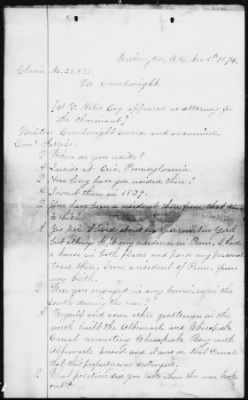 Washington, D.C. Dec 5th 1876.
Claim No. 21,831.
M. Courtwright.
Jos. J. Stiles Esq appears as attorney for
the claimant?
Milton Courtwright sworn and examined.
Com. Ferriss.
Q Where do you reside?
A I reside at Erie, Pennsylvania.
Q How long have you resided there?
A I went there in 1837.
Q You have been a resident there from that
to this?
A Yes sir. I lived about years in New York
but always my residence in Penn. I had
a house in both places and had my personal
taxes there. I was a resident of Penn. from
my birth.
Q Were you engaged in any business in the
South during the war?
A Myself and some other gentlemen in the
north built the Albemarle and Chesapeake
Canal connecting Chesapeake Bay with
Albemarle Sound and it was on that Canal
that this property was destroyed.
Q What position did you take when the war broke
out?